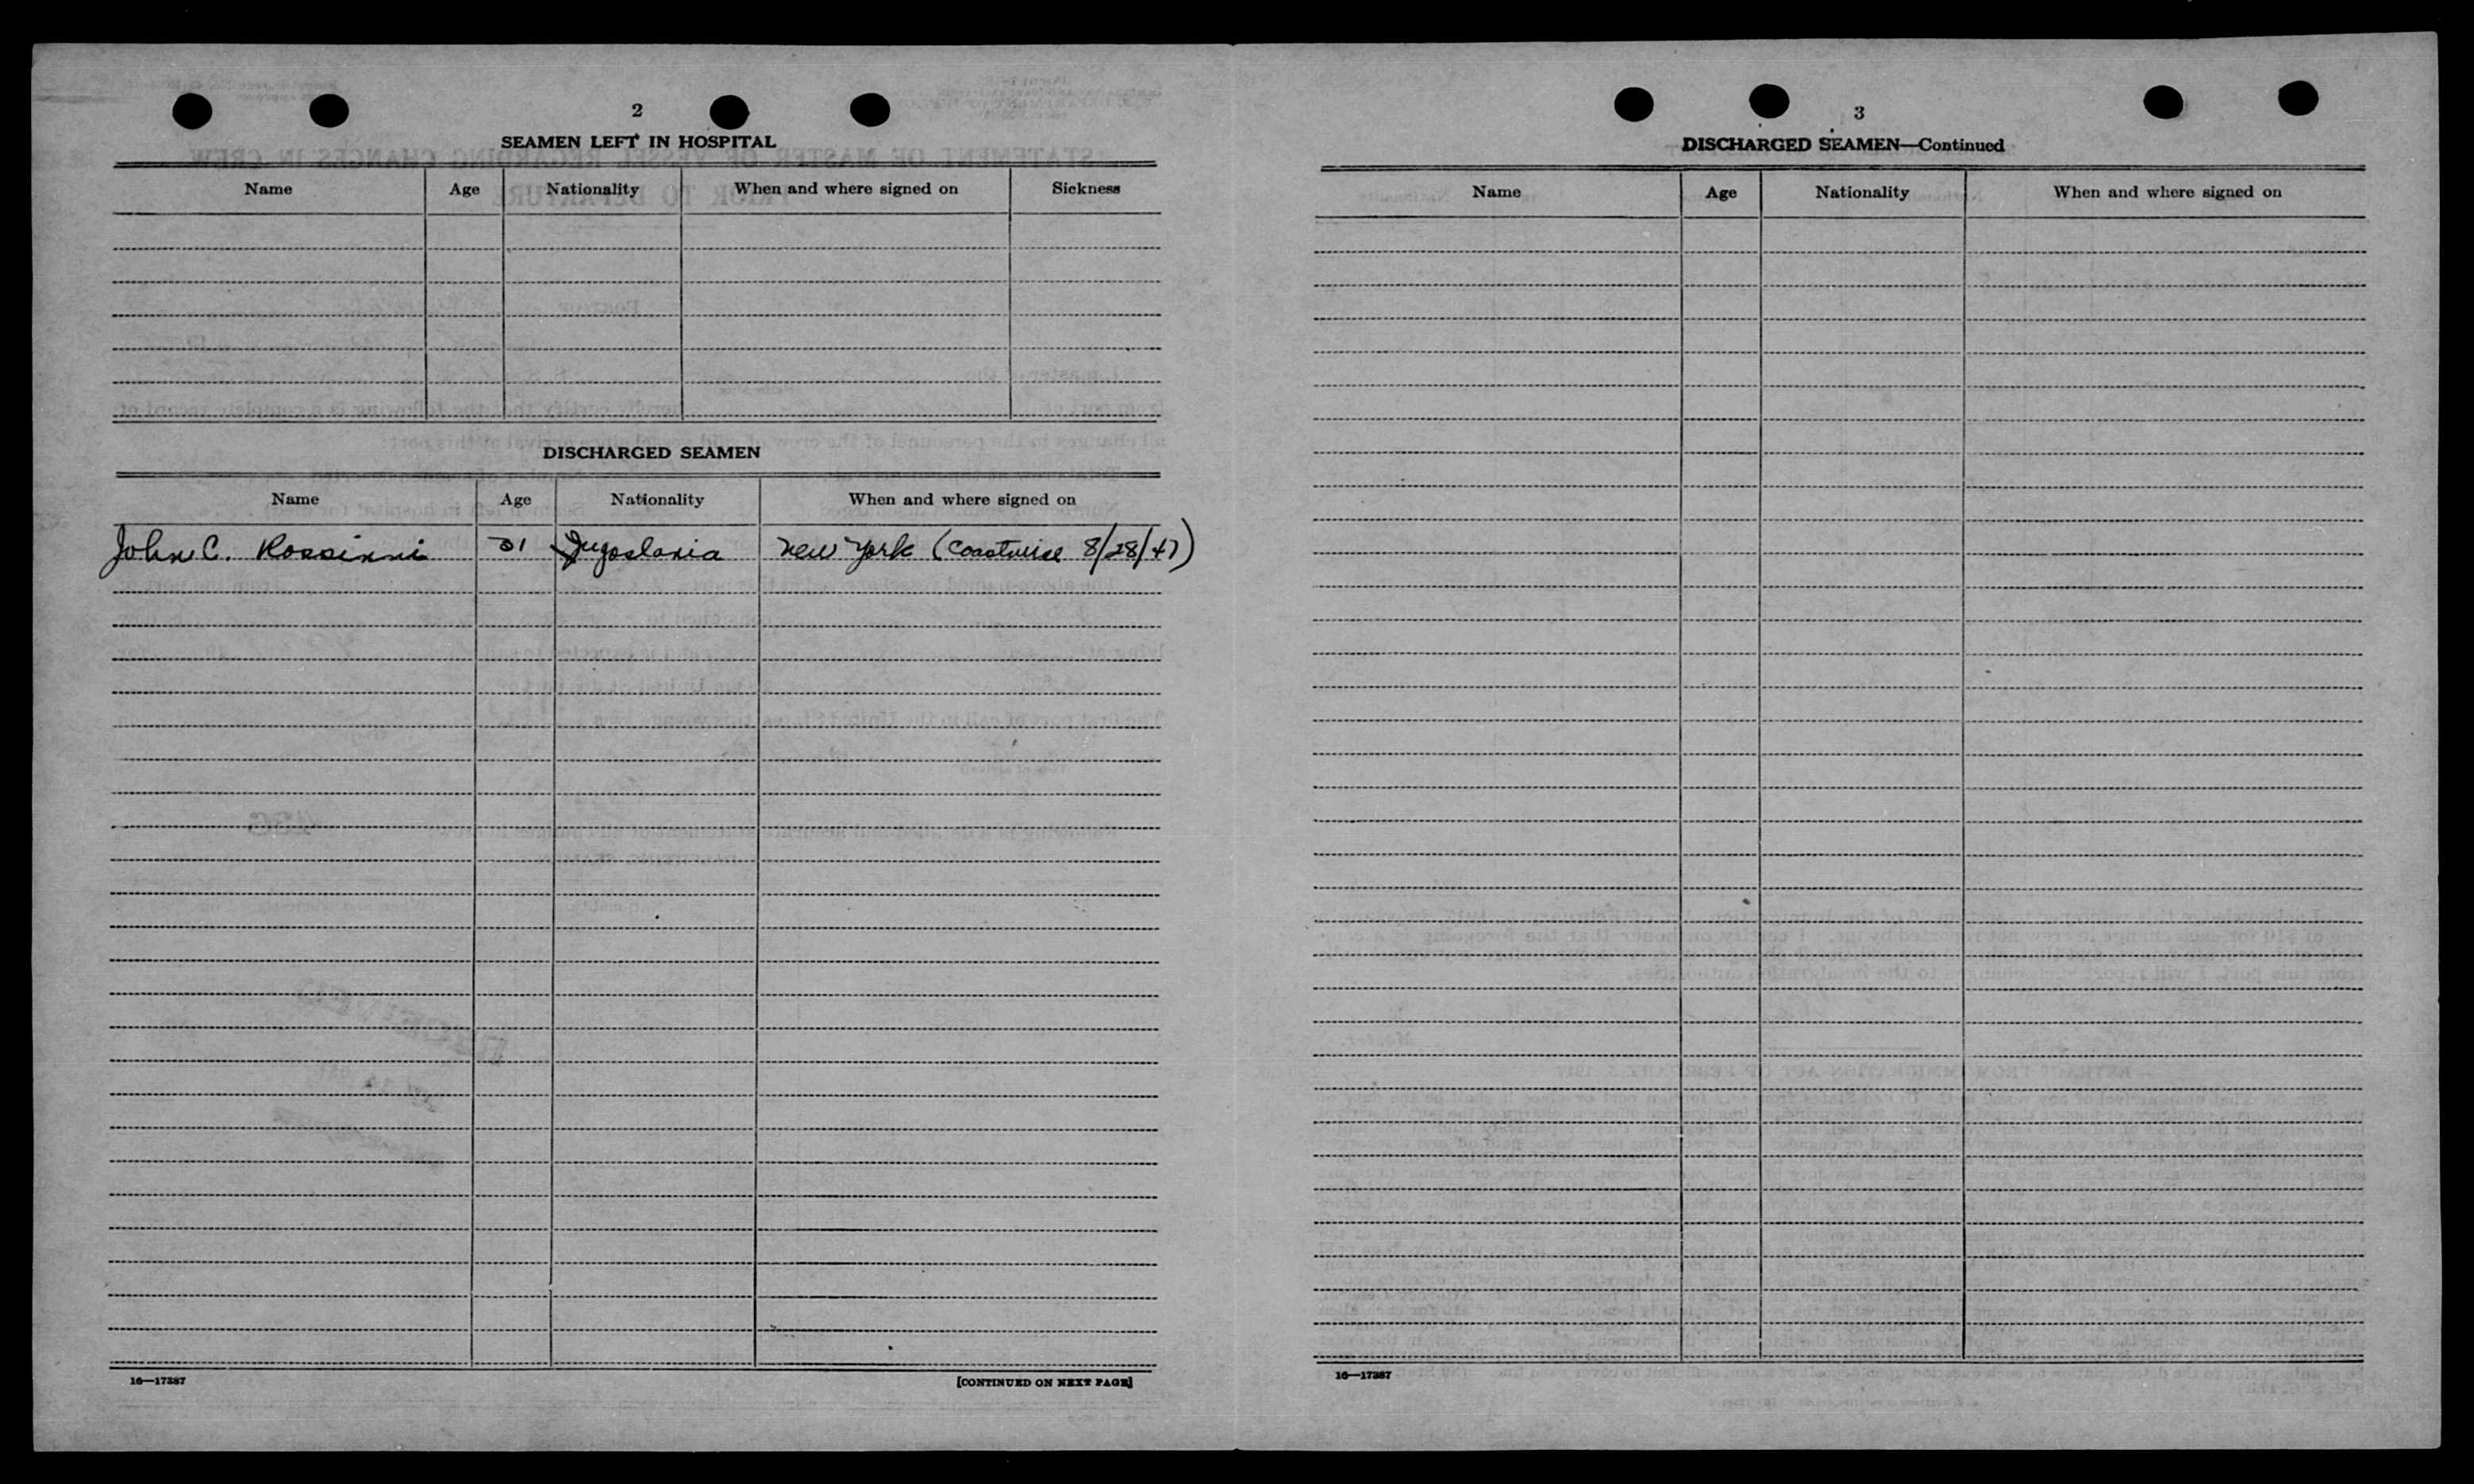 2
SEAMEN LEFT IN HOSPITAL
Name Age Nationality When and where signed on Sickness
DISCHARGED SEAMEN
Name Age Nationality When and where signed on
John C. Rossinni 31 Jugoslavia New York (Coastwise 8/28/47)
16—17387 [CONTINUED ON NEXT PAGE]
3
DISCHARGED SEAMEN—Continued
Name Age Nationality When and where signed on
16—17387